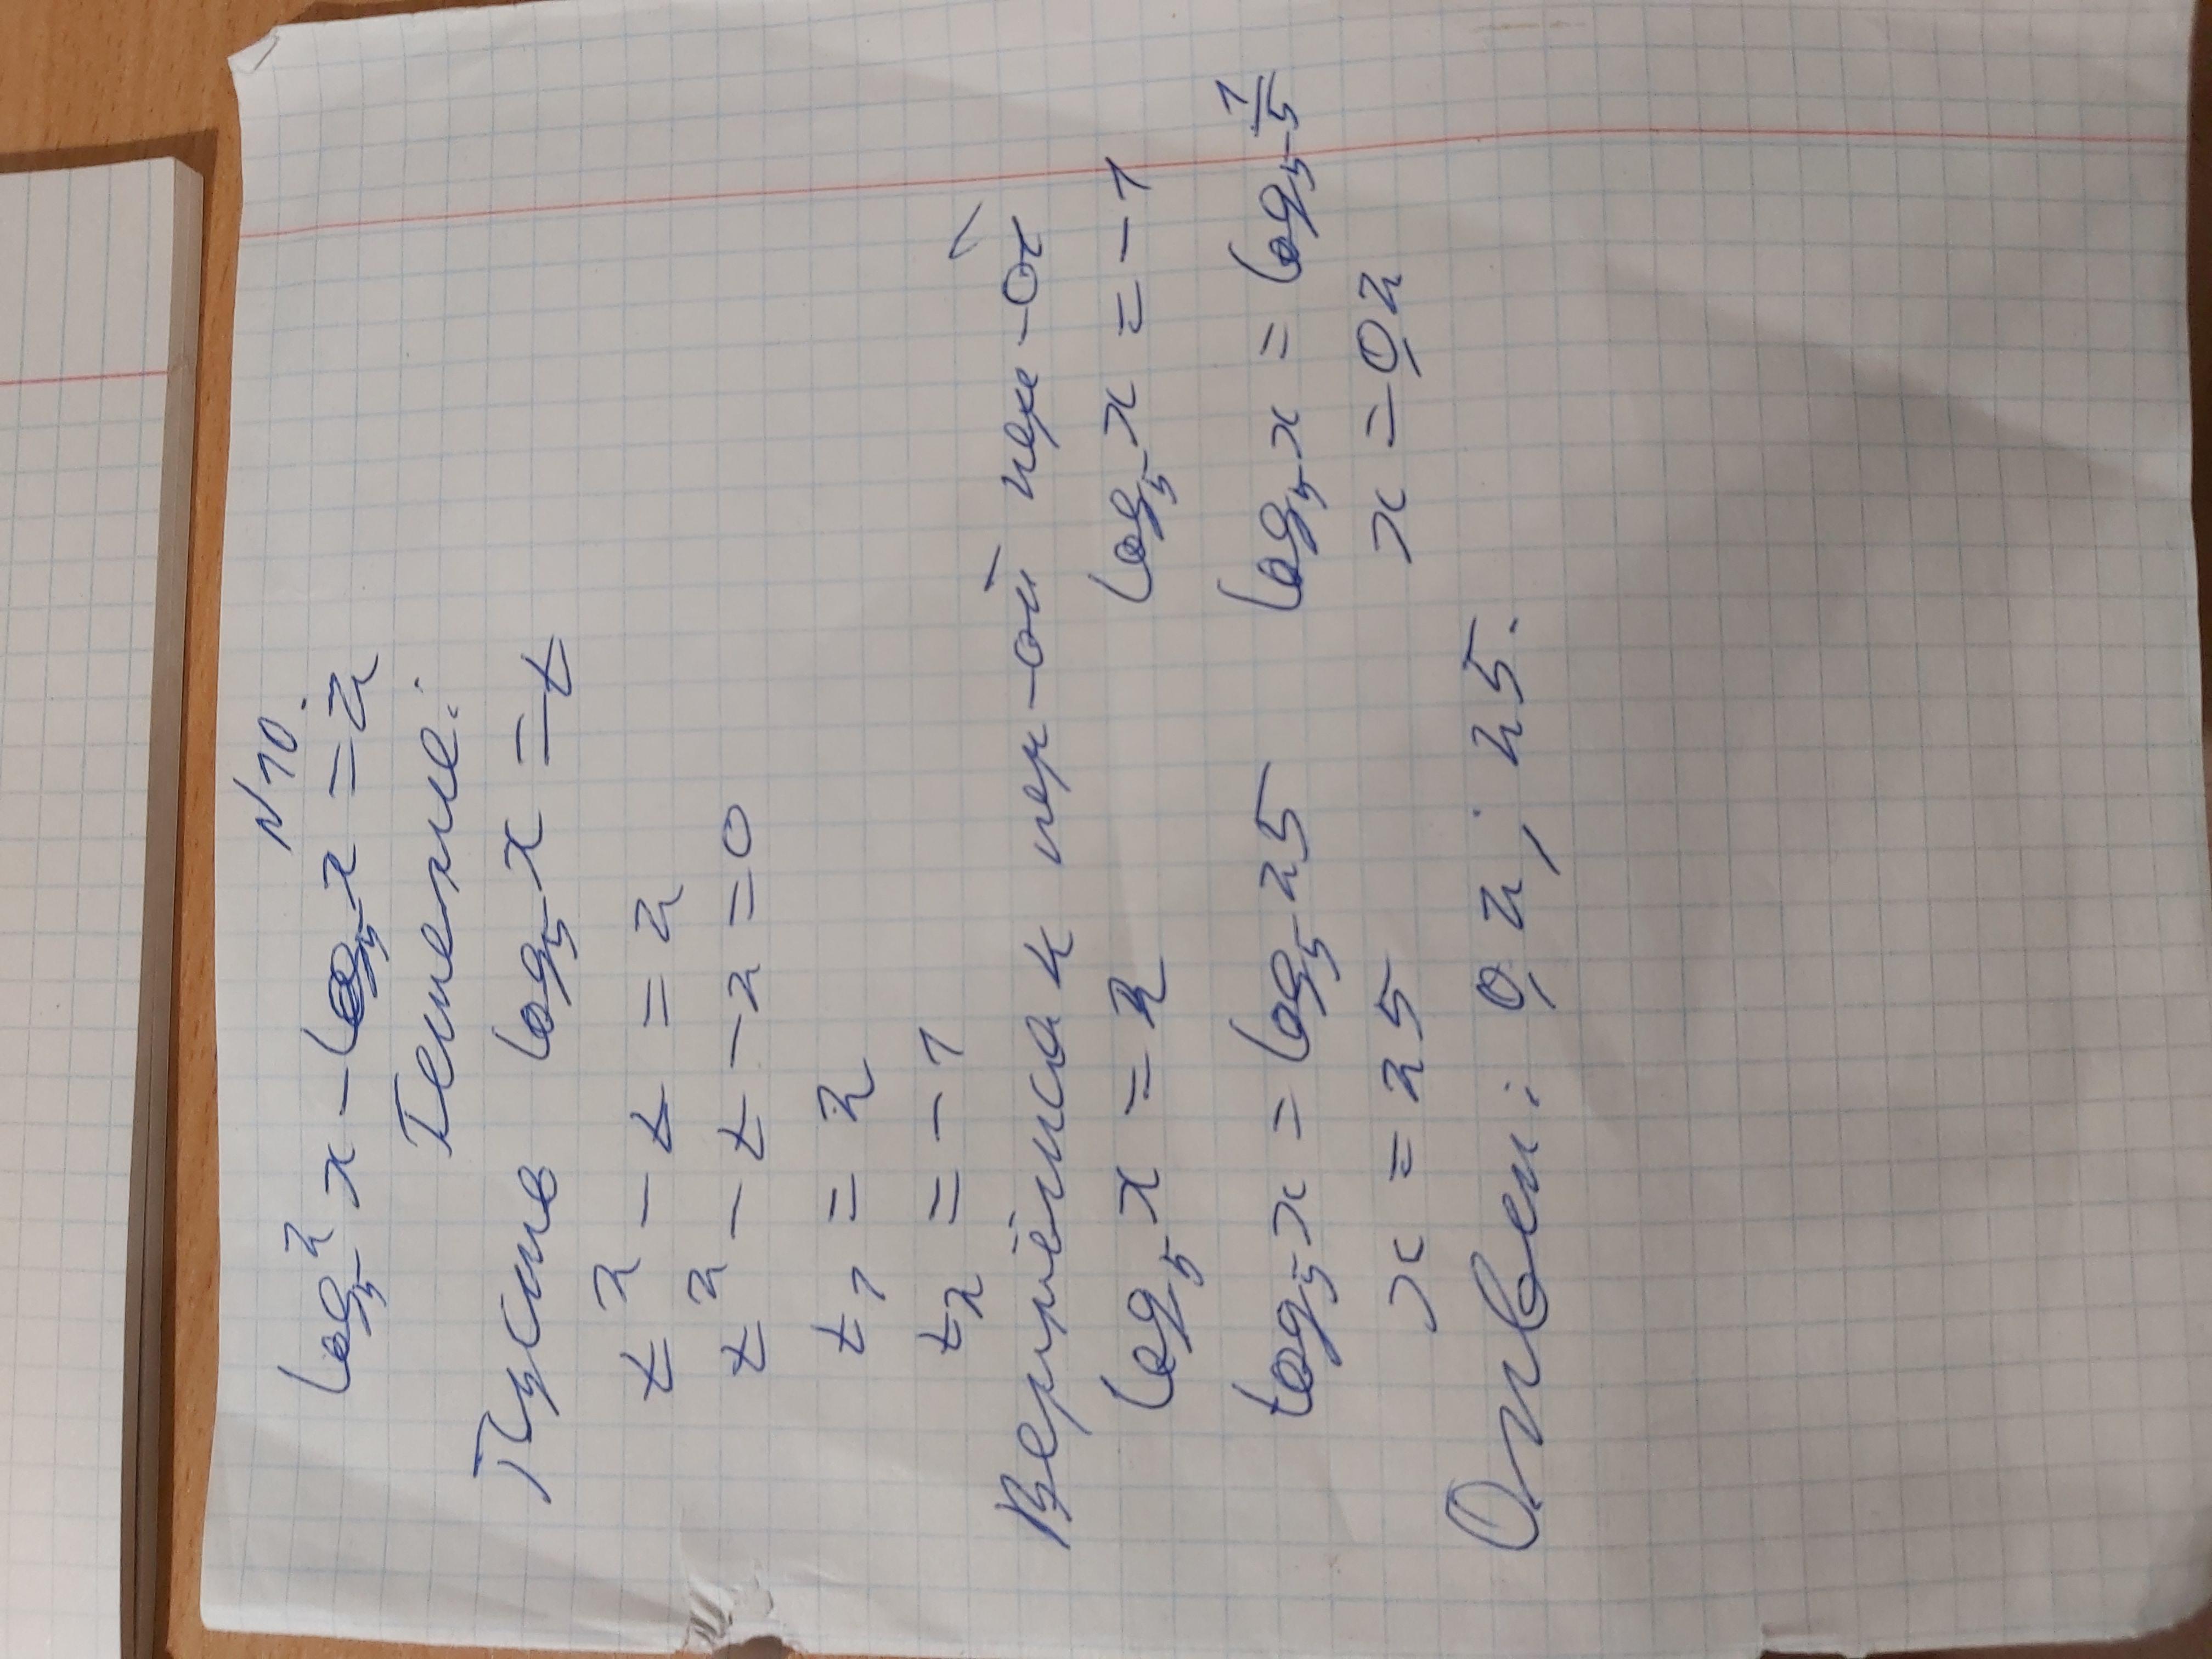 N10.
log₅²x - log₅x = 2
Решение:
Пусть log₅x = t
t² - t = 2
t² - t - 2 = 0
t₁ = 2
t₂ = -1
Вернёмся к пер-ой пере-ой
log₅x = 2 log₅x = -1
log₅x = log₅25 log₅x = log₅1/5
x = 25 x = 0,2
Ответ: 0,2; 25.